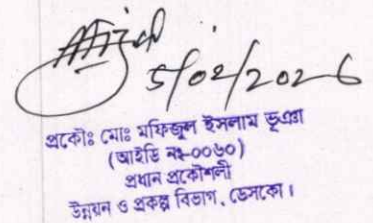 5/02/2026
প্রকৌঃ মোঃ মফিজুল ইসলাম ভূঞা
(আইডি নং-০০৬০)
প্রধান প্রকৌশলী
উন্নয়ন ও প্রকল্প বিভাগ, ডেসকো।